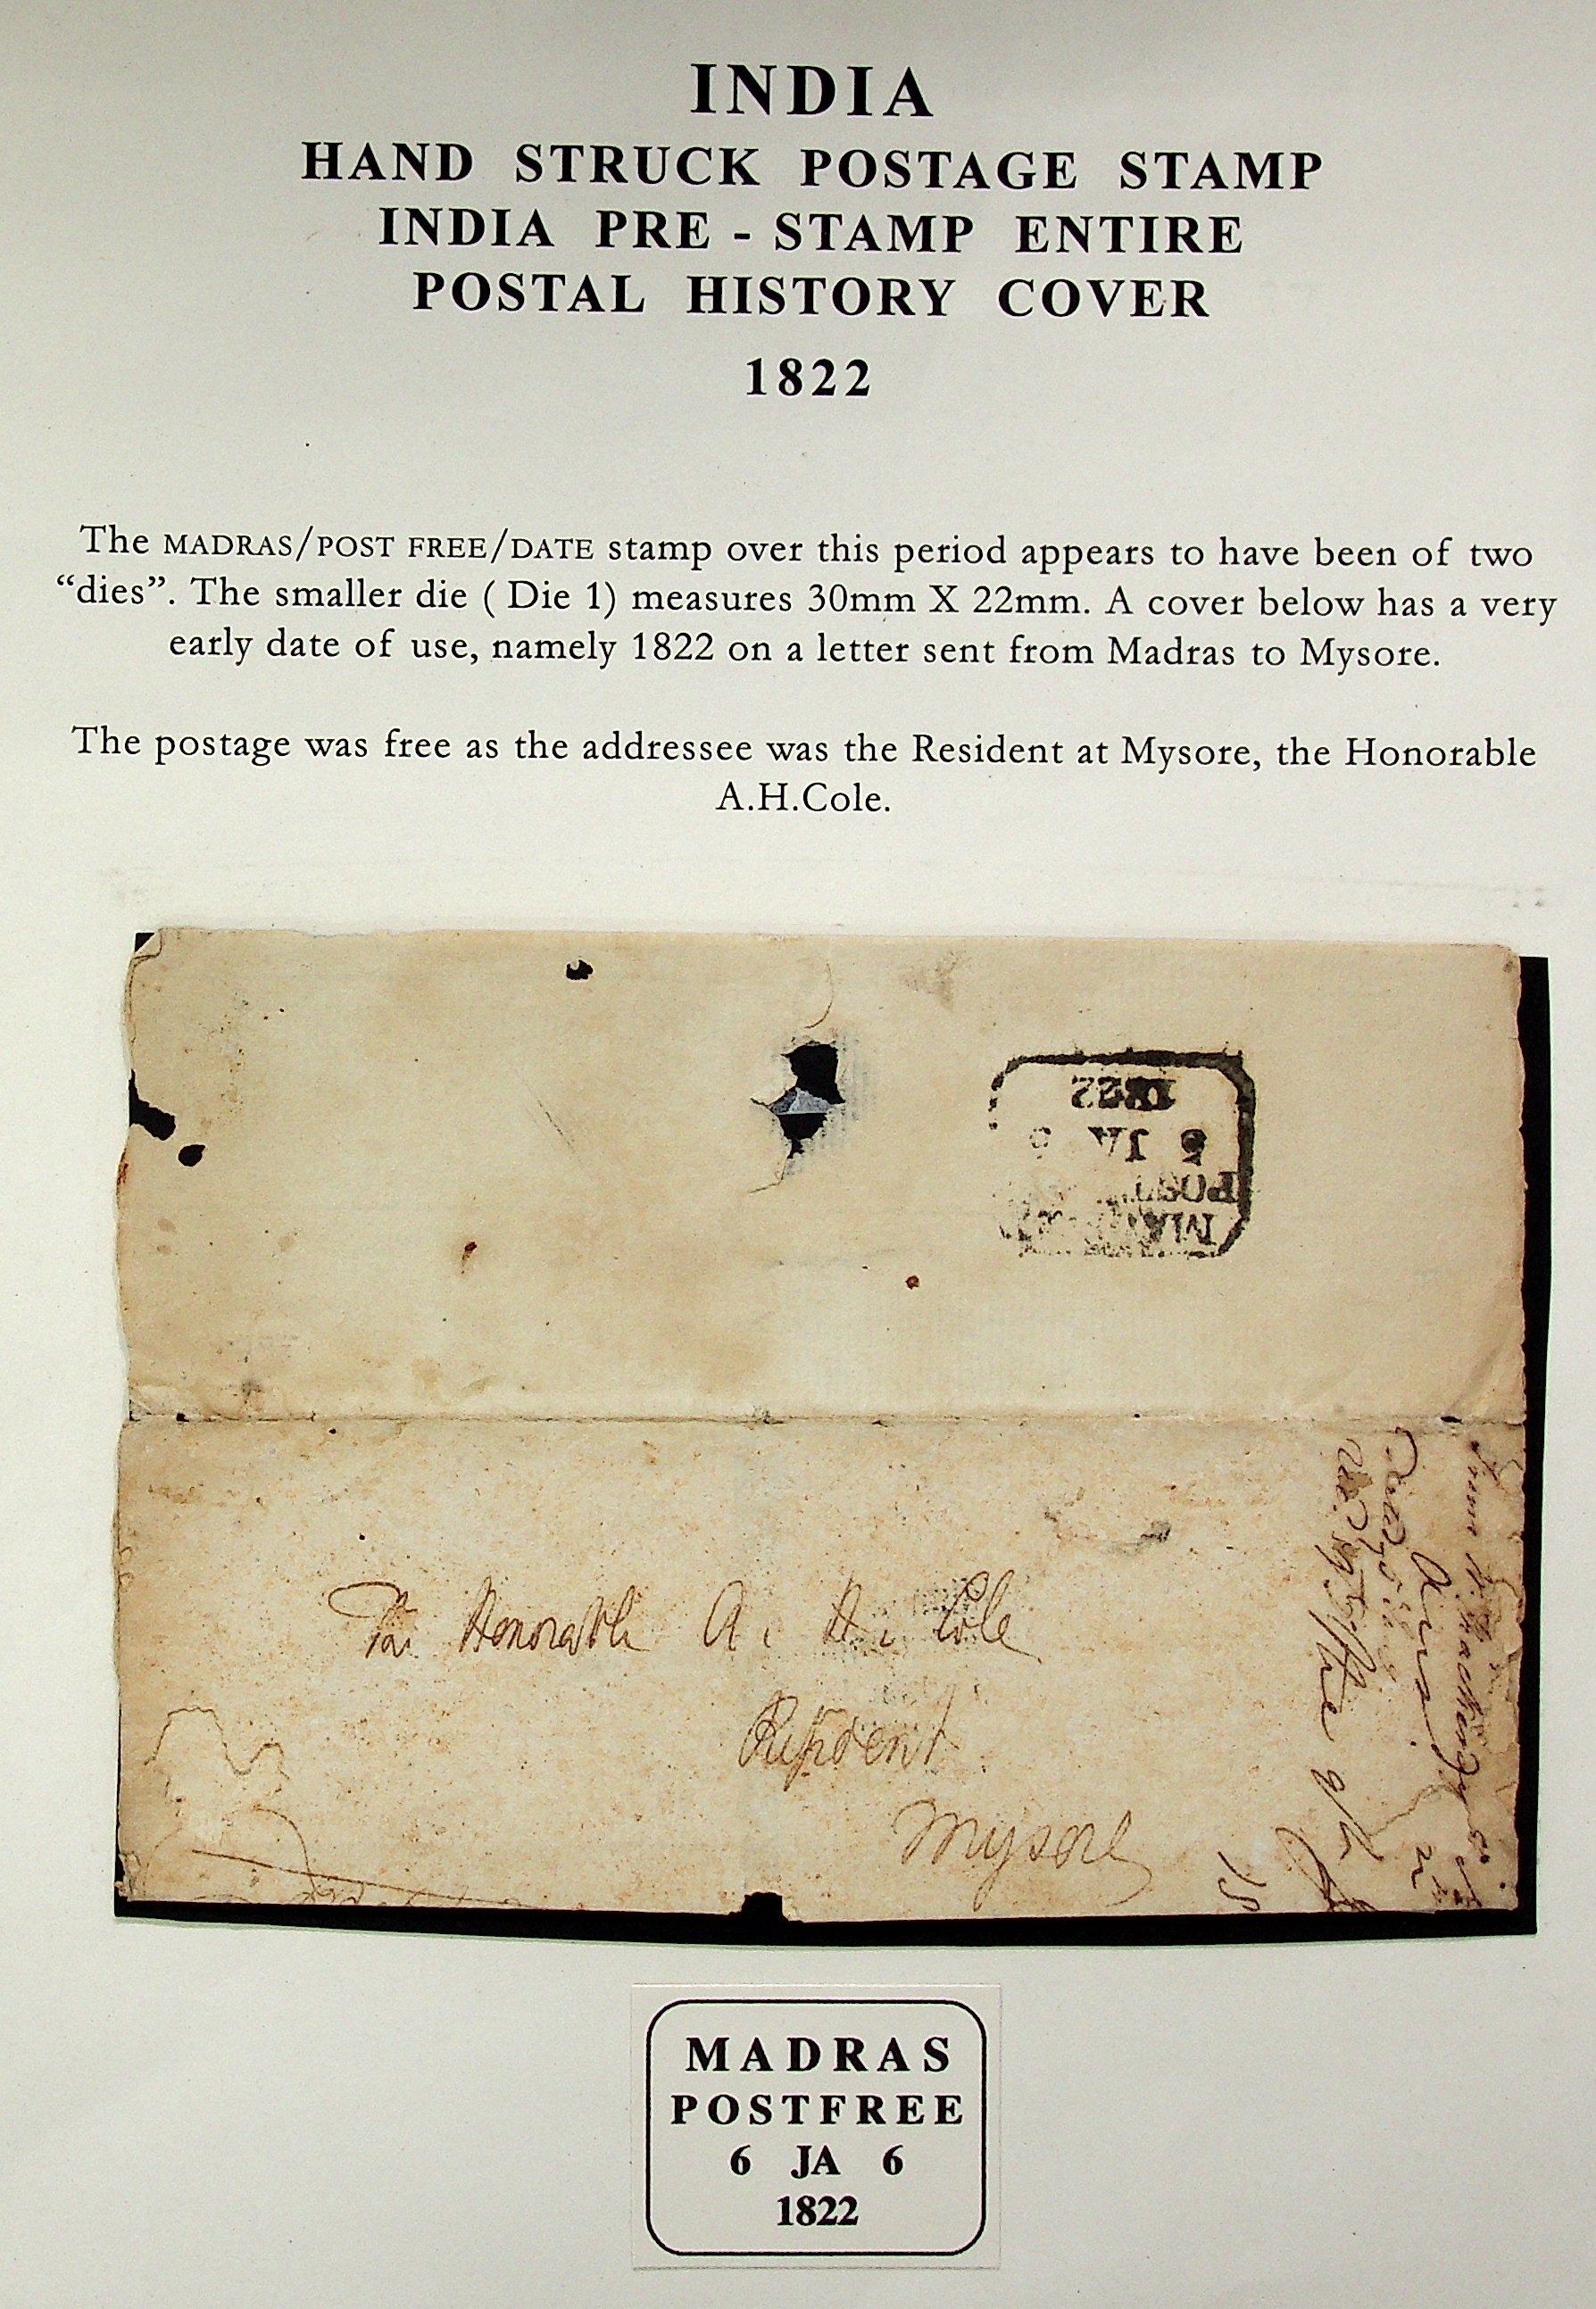 INDIA
HAND STRUCK POSTAGE STAMP
INDIA PRE - STAMP ENTIRE
POSTAL HISTORY COVER
1822
The MADRAS/POST FREE/DATE stamp over this period appears to have been of two
“dies”. The smaller die ( Die 1) measures 30mm X 22mm. A cover below has a very
early date of use, namely 1822 on a letter sent from Madras to Mysore.
The postage was free as the addressee was the Resident at Mysore, the Honorable
A.H.Cole.
1822
JA
POST
The Honorable A. H. Cole
Resident
Mysore
MADRAS
POSTFREE
6 JA 6
1822